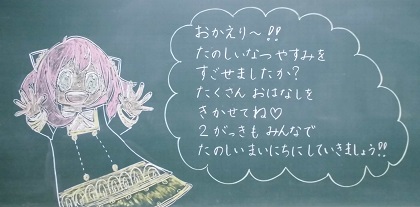 おかえり〜!!
たのしいなつやすみを
すごせましたか?
たくさん おはなしを
きかせてね♡
2がっきも みんなで
たのしいまいにちにしていきましょう!!